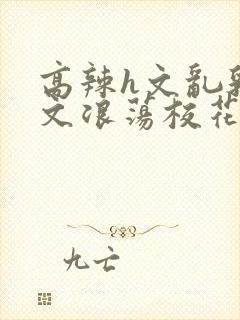 高辣h文乱乳
文浪荡校花
九亡